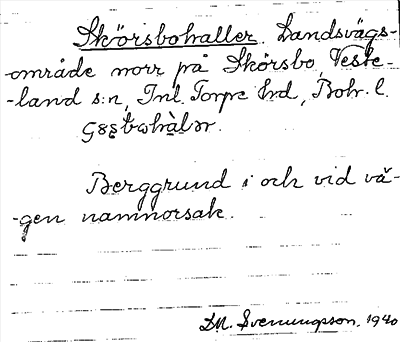 Skörsbohaller. Landsvägs-
-område norr på Skörsbo, Veste-
-land s:n, Inl. Torpe hrd, Boh. l.

Berggrund i och vid vä-
-gen namnorsak.
D.M. Svenungsson, 1940